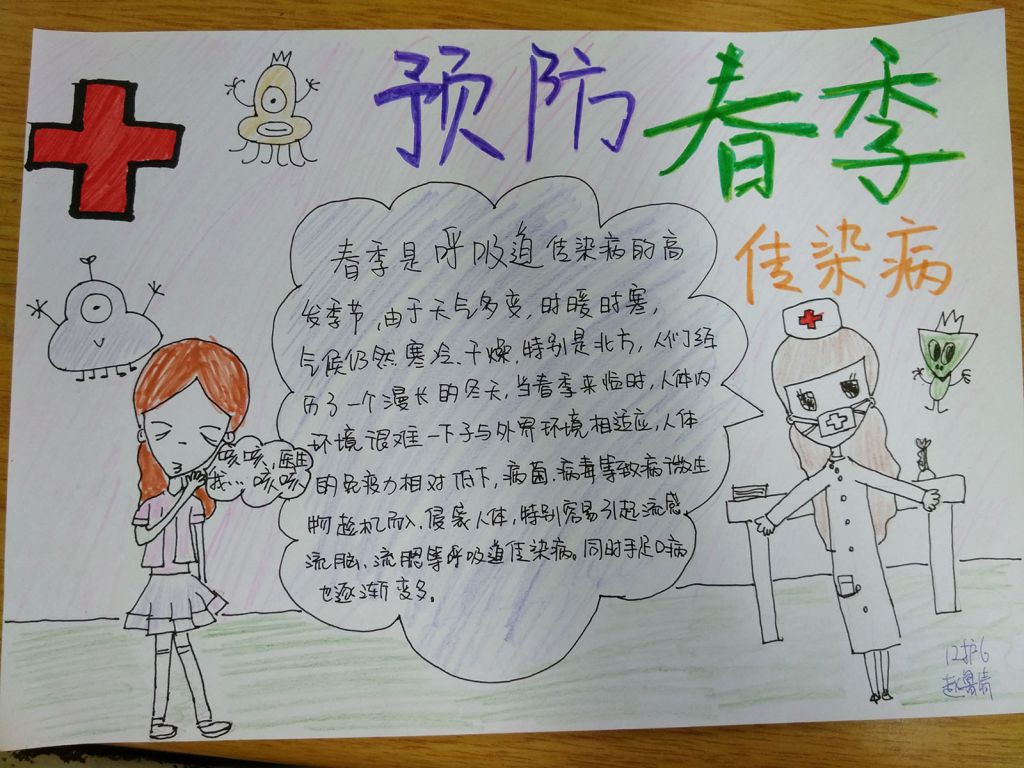 预防春季
传染病
春季是呼吸道传染病的高
发季节,由于天气多变,时暖时寒,
气候仍然寒冷、干燥.特别是北方,人们经
历了一个漫长的冬天,当春季来临时,人体内
环境很难一下子与外界环境相适应,人体
的免疫力相对低下,病菌、病毒等致病微生
物趁机而入,侵袭人体,特别容易引起流感
流脑、流腮等呼吸道传染病。同时手足口病
也逐渐变多。
咳咳,医生
我…咳咳
12护6